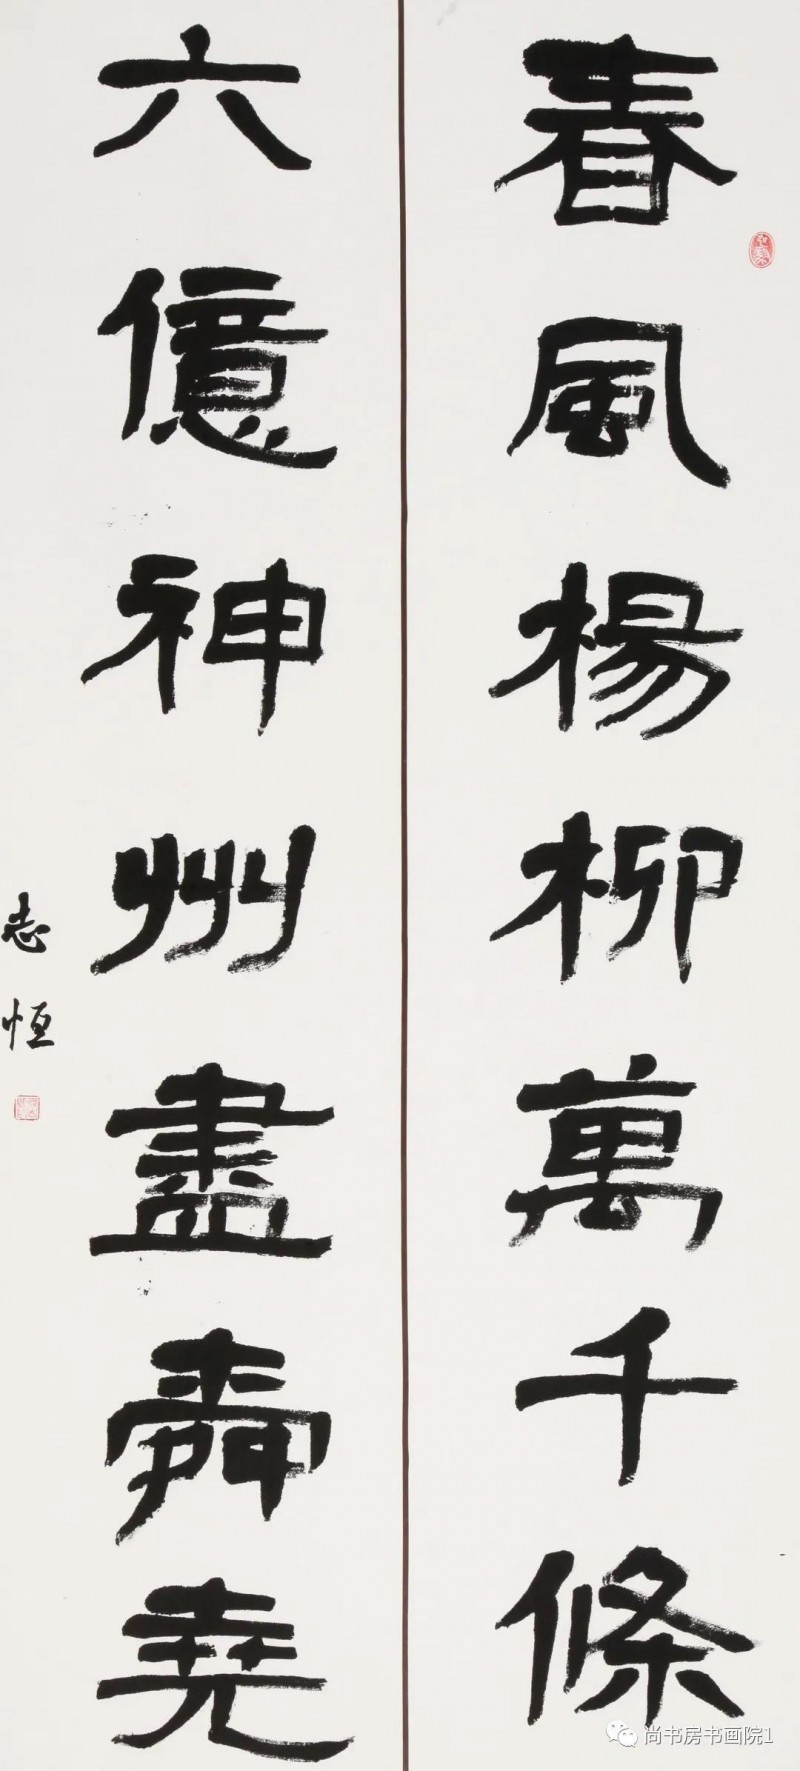 春風楊柳萬千條
六億神州盡舜堯
志恒
尚书房书画院1